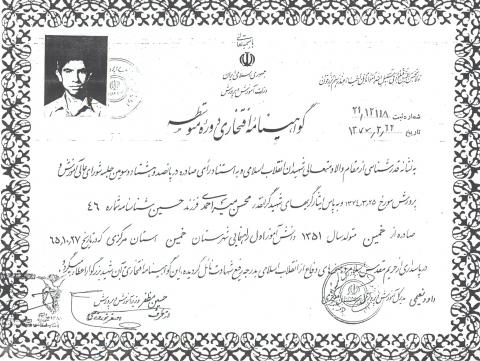 باسمه تعالی
جمهوری اسلامی ایران
وزارت آموزش و پرورش
گواهینامه افتخاری دوره متوسطه
شماره ثبت ۲۱/۱۲۱۱۸
تاریخ ۱۳۷۰/۲/۲۲
به نشانه قدرشناسی از مقام والا و متعالی شهیدان انقلاب اسلامی و به استناد رأی صادره در پانصد و هشتاد و سومین جلسه شورای عالی آموزش و
پرورش مورخ ۱۳۷۴/۳/۲۵ و به پاس ایثارگریهای شهید گرانقدر محسن میراحمدی فرزند حسین شناسنامه شماره ۴۶
صادره از خمین متولد سال ۱۳۵۱ دانش آموز اول راهنمایی شهرستان خمین استان مرکزی که در تاریخ ۶۵/۱۰/۲۷
در پاسداری از حریم مقدس اسلام و دفاع از انقلاب اسلامی به درجه رفیع شهادت نائل گردیده، این گواهینامه افتخاری به این شهید بزرگوار اعطا می‌گردد
حسین مظفر وزیر آموزش و پرورش
از طرف
داود نعیمی
مدیرکل آموزش و پرورش